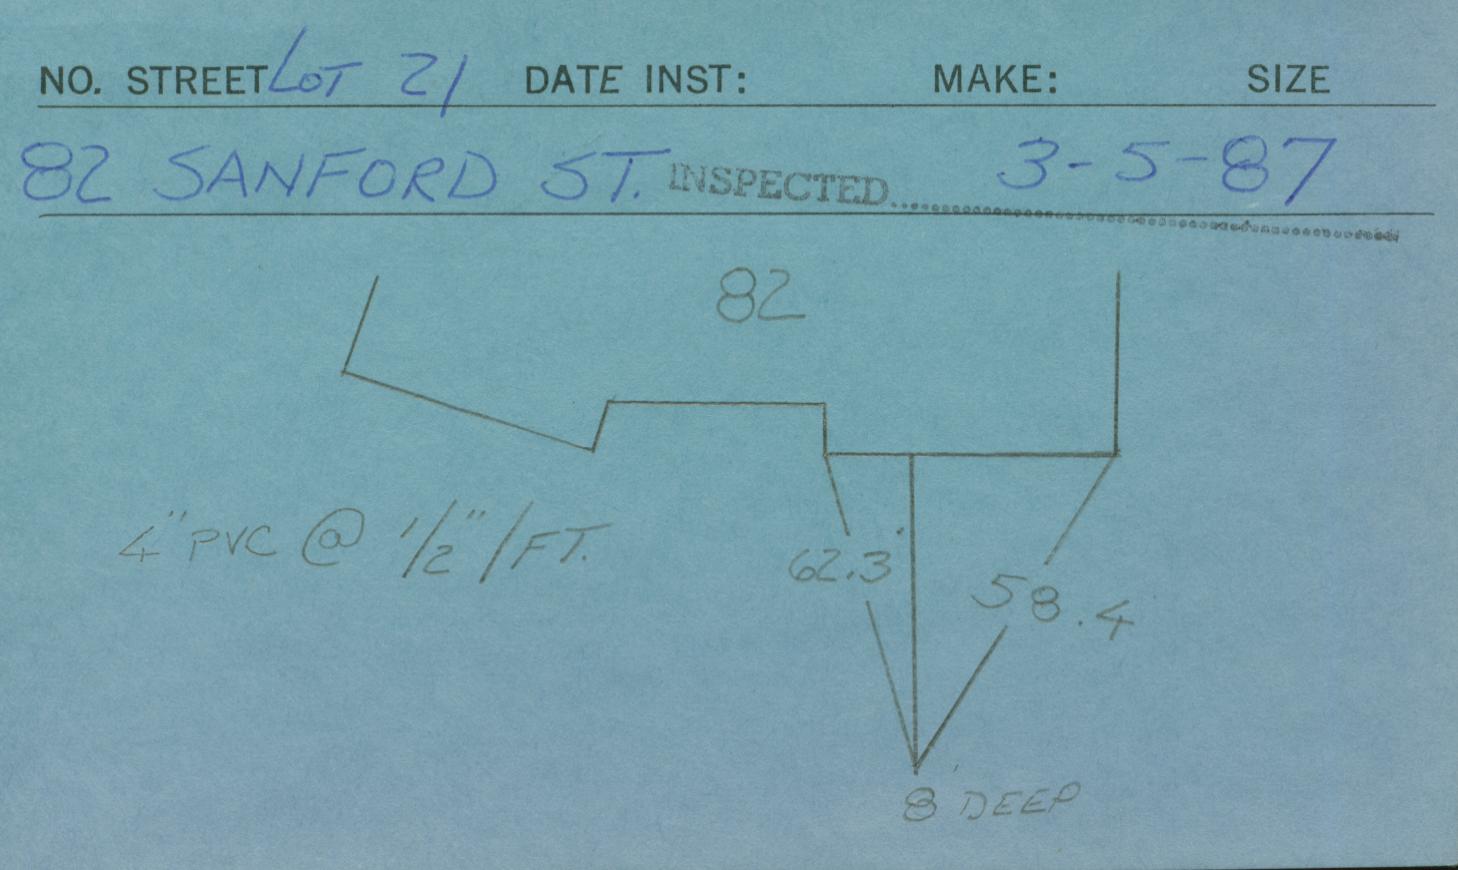 NO. STREET LOT 21 DATE INST: MAKE: SIZE
82 SANFORD ST. INSPECTED 3-5-87
82
4" PVC @ 1/2"/FT.
62.3'
58.4
8 DEEP